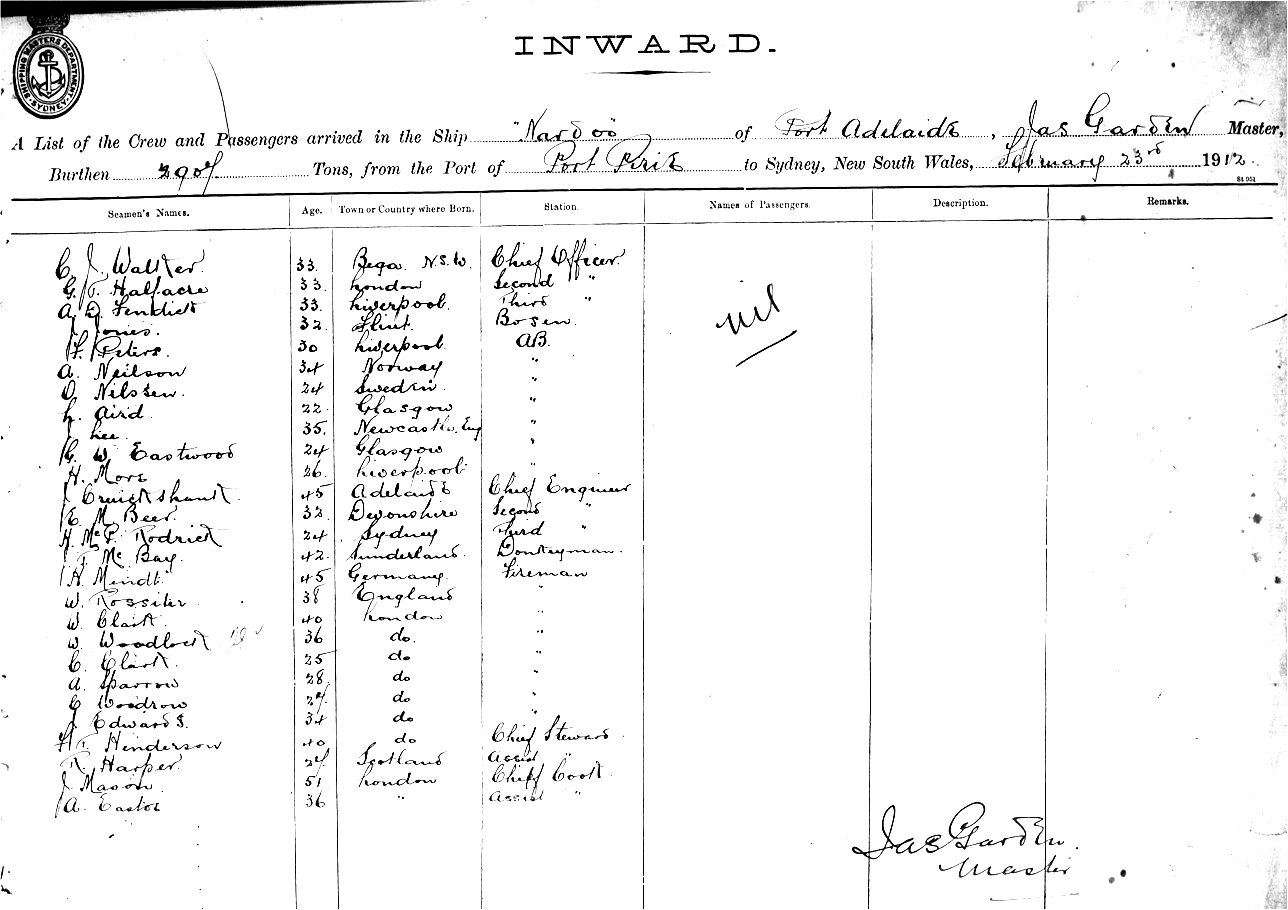 SHIPPING MASTERS DEPARTMENT SYDNEY
INWARD.
A List of the Crew and Passengers arrived in the Ship "Nardoo" of Port Adelaide, Jas Garden Master,
Burthen 2907 Tons, from the Port of Port Pirie to Sydney, New South Wales, February 23rd 1912.
St 951
Seamen's Names. Age. Town or Country where Born. Station. Names of Passengers. Description. Remarks.
C. J. Walker. 33. Bega. N.S.W. Chief Officer.
G. T. Halfacre 33. London Second "
A D. Fendick 33. Liverpool. Third "
J Jones. 32. Flint Bosen. nil
F. Peters. 30 Liverpool AB.
A. Neilson 34 Norway "
O. Nilssen. 24 Sweden "
L. Aird. 22. Glasgow "
J Lee. 35. Newcastle. Eng "
G. W Eastwood 24 Glasgow "
H. More 26. Liverpool "
J Cruickshank. 45 Adelaide Chief Engineer
E. M. Beer. 32 Devonshire Second "
H. McP. Rodrick 24 Sydney Third "
F. Mc Bay. 42. Sunderland. Donkeyman.
H. Mindt 45 Germany. Fireman
W. Rossiter 38 England "
W. Clark. 40 London "
W. Woodlock 36 do. "
C. Clark. 25 do "
A. Sparrow 28 do "
C Woodrow 27 do "
J. Edwards. 34 do "
F. Henderson 40 do Chief Steward
R. Harper. 27 Scotland Assist "
J Mason. 51 London Chief Cook
A. Eastoe 36 " Assist "
Jas Garden.
Master